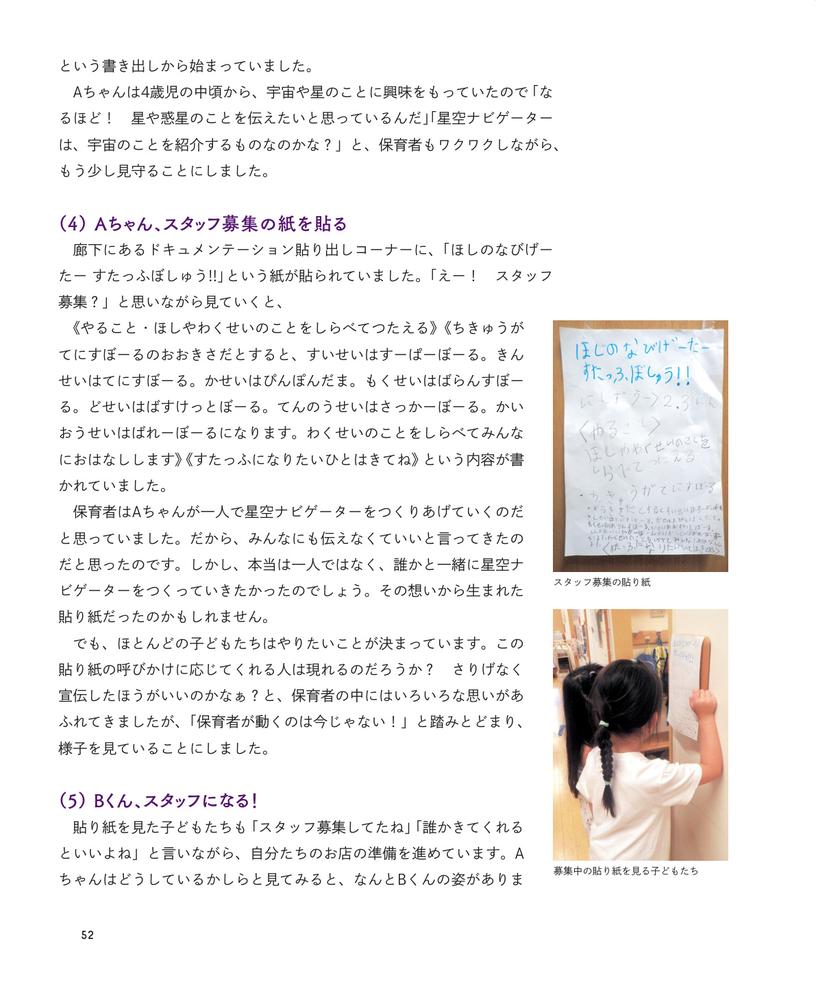 という書き出しから始まっていました。
Aちゃんは4歳児の中頃から、宇宙や星のことに興味をもっていたので「な
るほど！　星や惑星のことを伝えたいと思っているんだ」「星空ナビゲーター
は、宇宙のことを紹介するものなのかな？」と、保育者もワクワクしながら、
もう少し見守ることにしました。
(4) Aちゃん、スタッフ募集の紙を貼る
廊下にあるドキュメンテーション貼り出しコーナーに、「ほしのなびげー
たー すたっふぼしゅう!!」という紙が貼られていました。「えー！　スタッフ
募集？」と思いながら見ていくと、
《やること・ほしやわくせいのことをしらべてつたえる》《ちきゅうが
てにすぼーるのおおきさだとすると、すいせいはすーぱーぼーる。きん
せいはてにすぼーる。かせいはぴんぽんだま。もくせいはばらんすぼー
る。どせいはばすけっとぼーる。てんのうせいはさっかーぼーる。かい
おうせいはばれーぼーるになります。わくせいのことをしらべてみんな
におはなしします》《すたっふになりたいひとはきてね》という内容が書
かれていました。
保育者はAちゃんが一人で星空ナビゲーターをつくりあげていくのだ
と思っていました。だから、みんなにも伝えなくていいと言ってきたの
だと思ったのです。しかし、本当は一人ではなく、誰かと一緒に星空ナ
ビゲーターをつくっていきたかったのでしょう。その想いから生まれた
貼り紙だったのかもしれません。
でも、ほとんどの子どもたちはやりたいことが決まっています。この
貼り紙の呼びかけに応じてくれる人は現れるのだろうか？　さりげなく
宣伝したほうがいいのかなぁ？と、保育者の中にはいろいろな思いがあ
ふれてきましたが、「保育者が動くのは今じゃない！」と踏みとどまり、
様子を見ていることにしました。
(5) Bくん、スタッフになる！
貼り紙を見た子どもたちも「スタッフ募集してたね」「誰かきてくれる
といいよね」と言いながら、自分たちのお店の準備を進めています。A
ちゃんはどうしているかしらと見てみると、なんとBくんの姿がありま
ほしのなびげーたー
すたっふぼしゅう!!
スタッフ募集の貼り紙
募集中の貼り紙を見る子どもたち
52